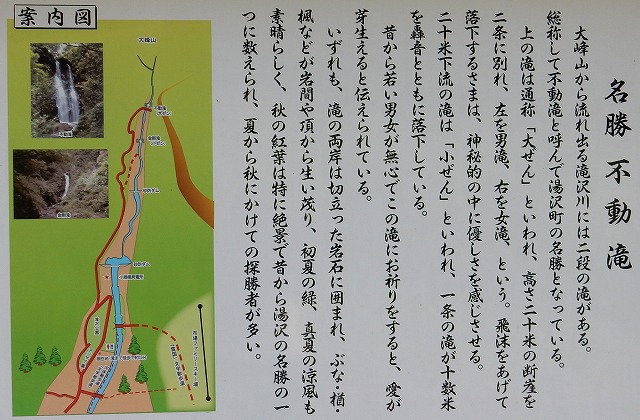 名勝 不動滝
大峰山から流れ出る滝沢川には二段の滝がある。
総称して不動滝と呼んで湯沢町の名勝となっている。
上の滝は通称「大ぜん」といわれ、高さ二十米の断崖を
二条に別れ、左を男滝、右を女滝、という。飛沫をあげて
落下するさまは、神秘的の中に優しさを感じさせる。
二十米下流の滝は「小ぜん」といわれ、一条の滝が十数米
を轟音とともに落下している。
昔から若い男女が無心でこの滝にお祈りをすると、愛が
芽生えると伝えられている。
いずれも、滝の両岸は切立った岩石に囲まれ、ぶな・楢・
楓などが岩間や頂から生い茂り、初夏の緑、真夏の涼風も
素晴らしく、秋の紅葉は特に絶景で昔から湯沢の名勝の一
つに数えられ、夏から秋にかけての探勝者が多い。
案内図
大峰山
不動滝
砂防ダム
砂防ダム